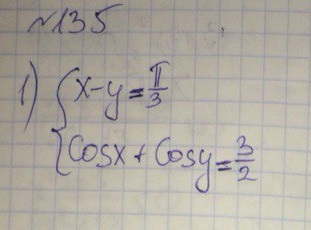 №135
1) { x-y = π/3
{ Cosx + Cosy = 3/2